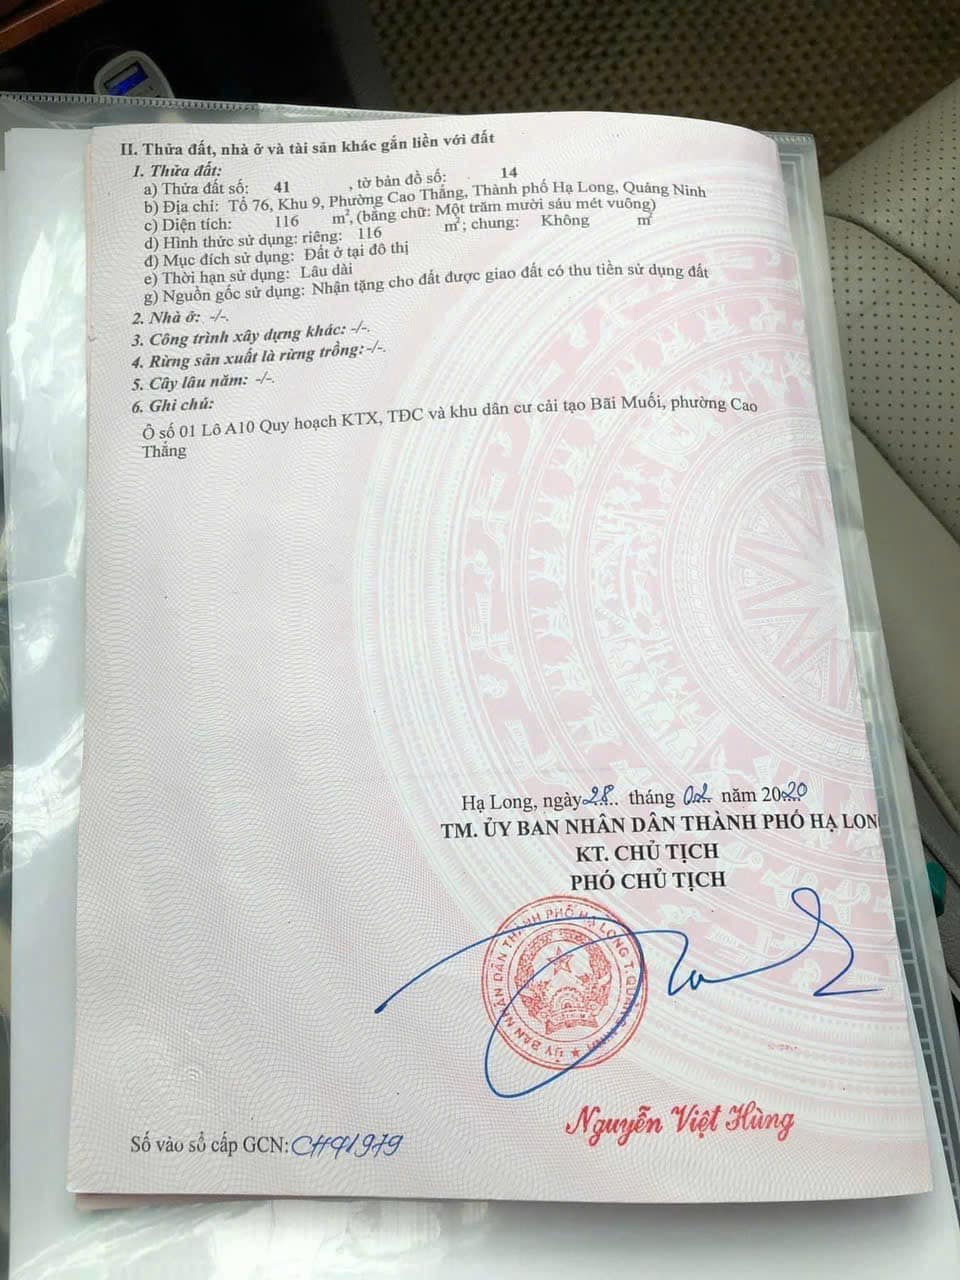 II. Thửa đất, nhà ở và tài sản khác gắn liền với đất
1. Thửa đất:
a) Thửa đất số: 41 , tờ bản đồ số: 14
b) Địa chỉ: Tổ 76, Khu 9, Phường Cao Thắng, Thành phố Hạ Long, Quảng Ninh
c) Diện tích: 116 m², (bằng chữ: Một trăm mười sáu mét vuông)
d) Hình thức sử dụng: riêng: 116 m²; chung: Không m²
đ) Mục đích sử dụng: Đất ở tại đô thị
e) Thời hạn sử dụng: Lâu dài
g) Nguồn gốc sử dụng: Nhận tặng cho đất được giao đất có thu tiền sử dụng đất
2. Nhà ở: -/-.
3. Công trình xây dựng khác: -/-.
4. Rừng sản xuất là rừng trồng:-/-.
5. Cây lâu năm: -/-.
6. Ghi chú:
Ô số 01 Lô A10 Quy hoạch KTX, TĐC và khu dân cư cải tạo Bãi Muối, phường Cao
Thắng
Hạ Long, ngày 28 tháng 02 năm 2020
TM. ỦY BAN NHÂN DÂN THÀNH PHỐ HẠ LONG
KT. CHỦ TỊCH
PHÓ CHỦ TỊCH
ỦY BAN NHÂN DÂN THÀNH PHỐ HẠ LONG T. QUẢNG NINH
Nguyễn Việt Hùng
Số vào sổ cấp GCN: CH41979